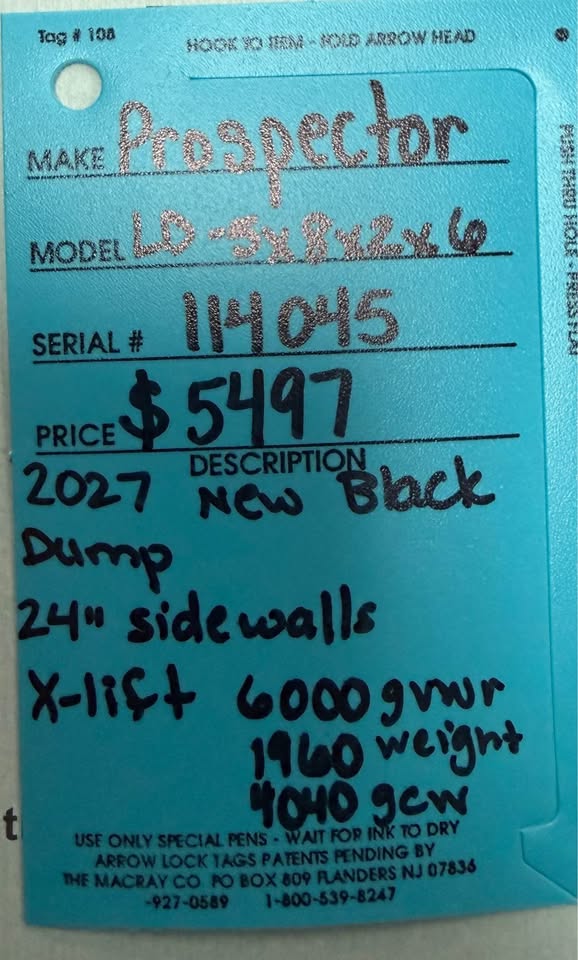 Tag # 108
HOOK TO ITEM - FOLD ARROW HEAD
MAKE Prospector
MODEL LD-5x8x2x6
SERIAL # 114045
PRICE $5497
DESCRIPTION
2027 New Black
Dump
24" sidewalls
X-lift 6000 gvwr
1960 weight
4040 gcw
USE ONLY SPECIAL PENS - WAIT FOR INK TO DRY
ARROW LOCK TAGS PATENTS PENDING BY
THE MACRAY CO. PO BOX 809 FLANDERS NJ 07836
-927-0589 1-800-539-8247
PUSH THRU HOLE - PRESS FLAT
t